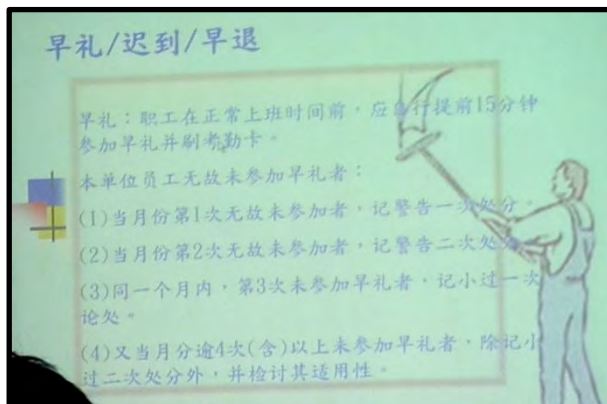 早礼/迟到/早退
早礼：职工在正常上班时间前，应自行提前15分钟
参加早礼并刷考勤卡。
本单位员工无故未参加早礼者：
(1)当月份第1次无故未参加者，记警告一次处分。
(2)当月份第2次无故未参加者，记警告二次处分。
(3)同一个月内，第3次未参加早礼者，记小过一次
论处。
(4)又当月分逾4次(含)以上未参加早礼者，除记小
过二次处分外，并检讨其适用性。